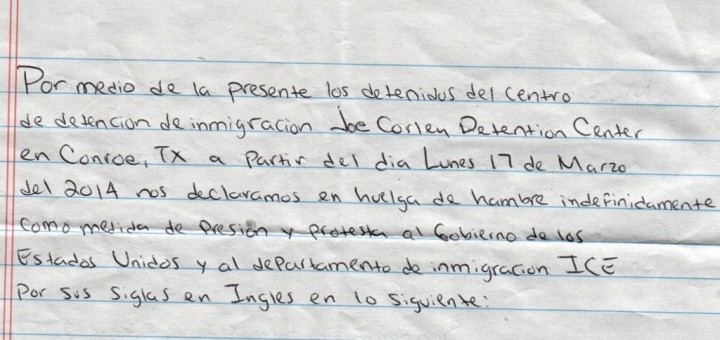 Por medio de la presente los detenidos del centro
de detencion de inmigracion Joe Corley Detention Center
en Conroe, TX a partir del dia Lunes 17 de Marzo
del 2014 nos declaramos en huelga de hambre indefinidamente
como medida de presión y protesta al Gobierno de los
Estados Unidos y al departamento de inmigracion ICE
por sus siglas en Ingles en lo siguiente: